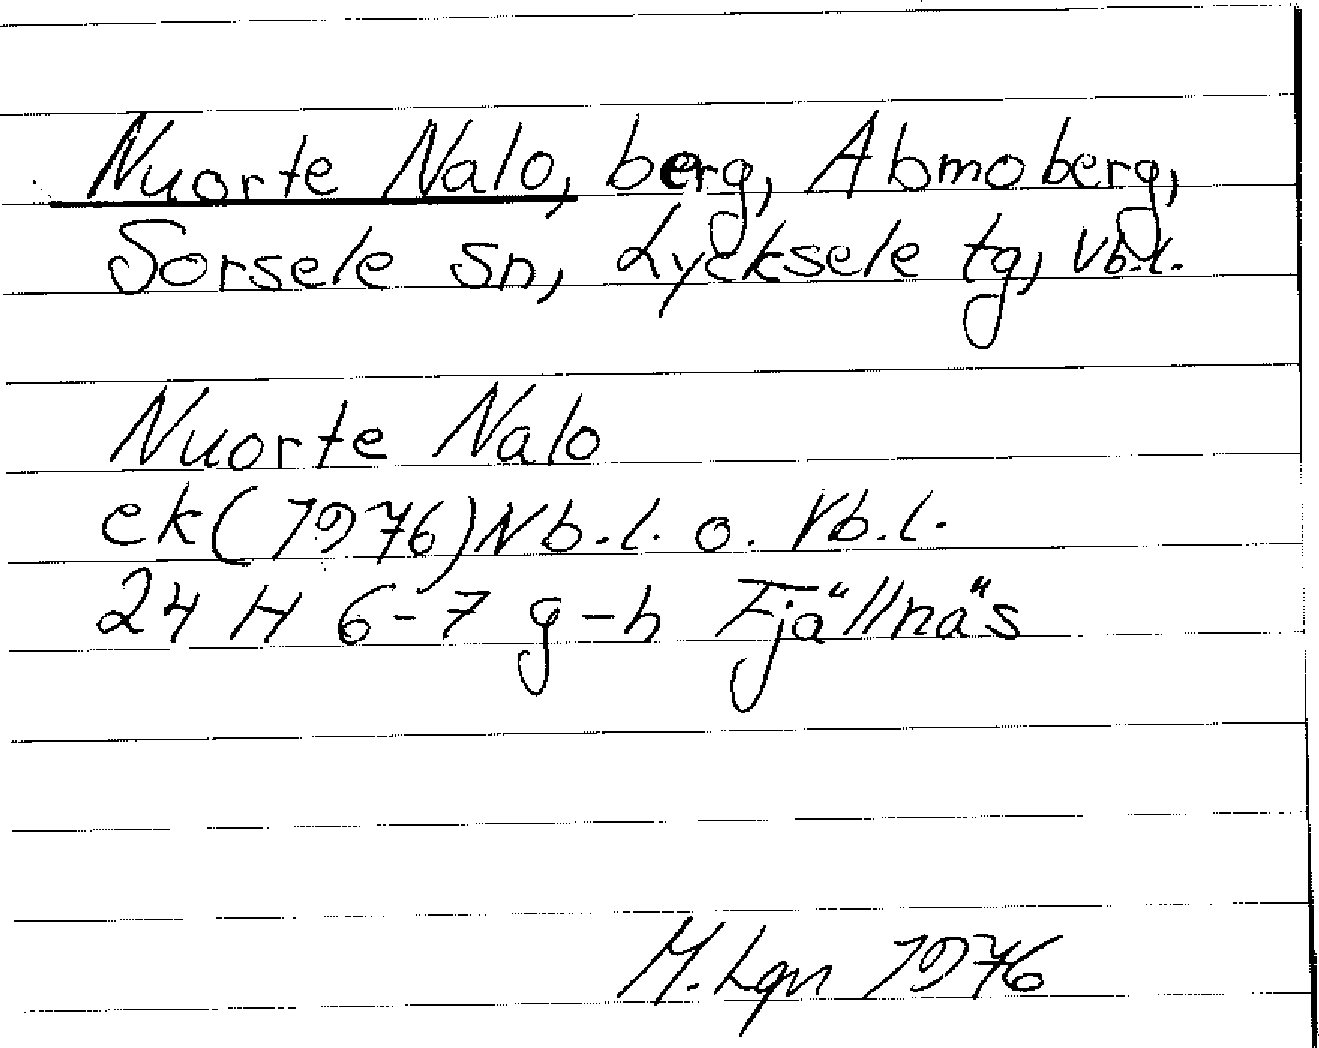 Nuorte Nalo, berg, Abmoberg,
Sorsele sn, Lycksele tg, Vb.l.
Nuorte Nalo
ek (1976) Nb.l. o. Vb.l.
24 H 6-7 g-h Fjällnäs
M. Lgn 1976